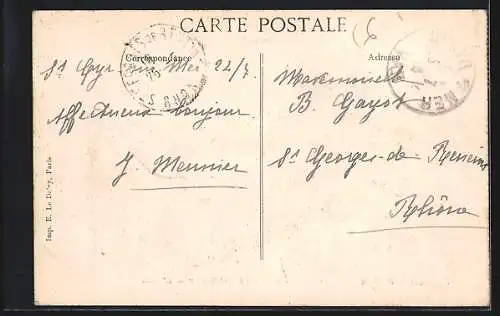 CARTE POSTALE
Correspondance
Adresse
St Cyr sur Mer 22/7
Affectueux bonjour
J. Meunier
Mademoiselle
B. Gayot
St Georges-de-Reneins
Rhône
Imp. E. Le Deley, Paris